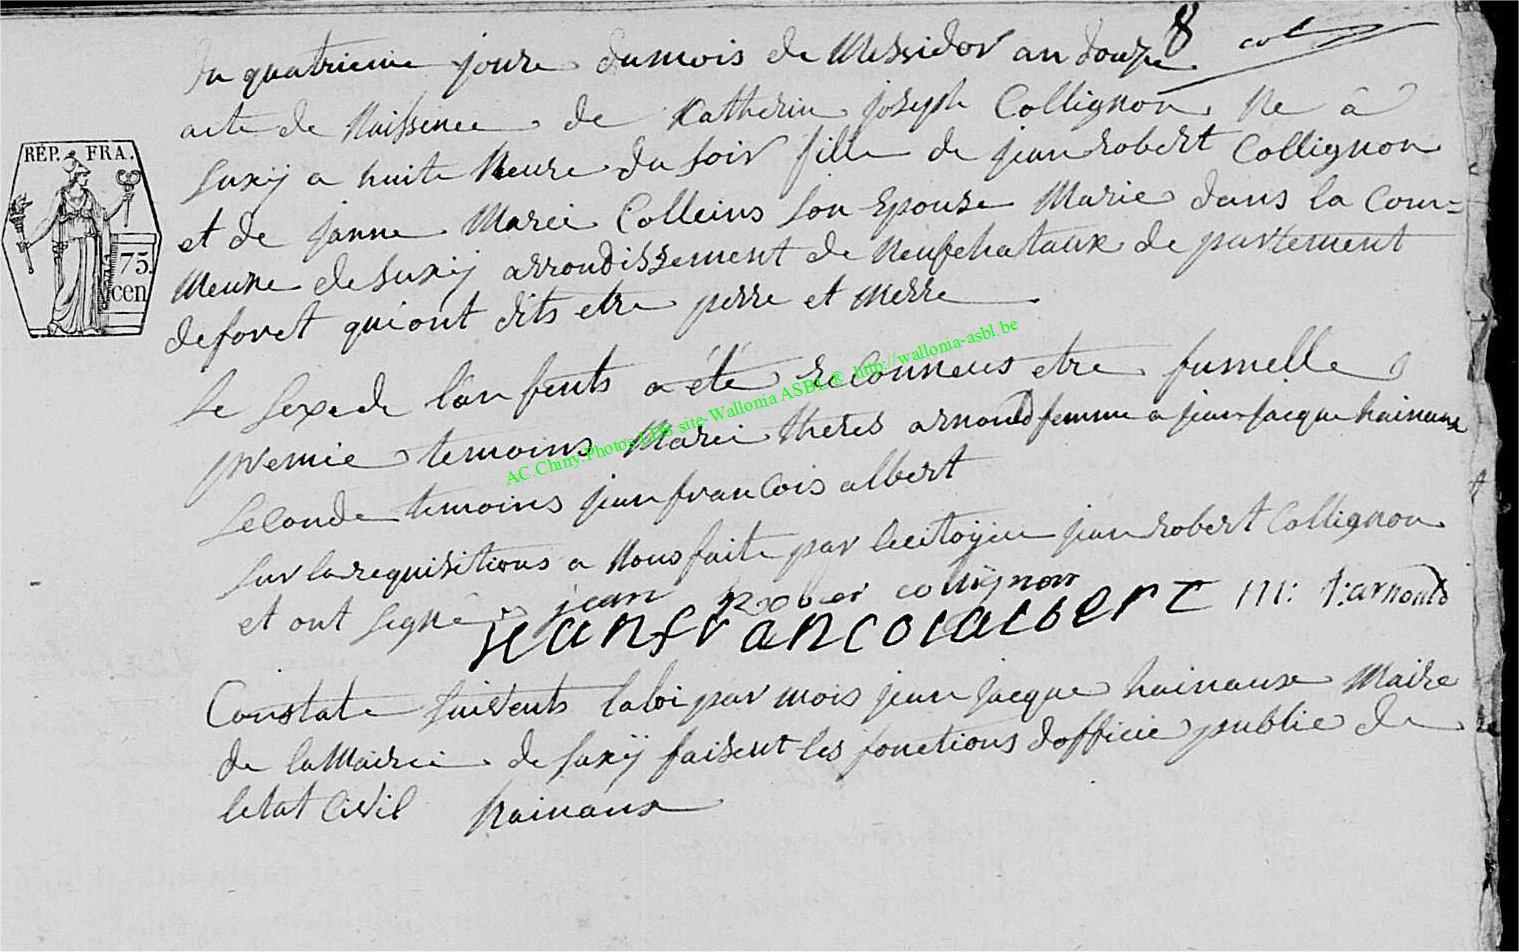 8
Du quatrieme jour du mois de Messidor an douze
acte de Naissence de Katherin joseph Collignon Ne â
Suxÿ a huite Heure du soir fille de jean robert Collignon
et de janne Marei Colleins son Epouse Marie dans la Com=
Meune de Suxÿ arroudissement de Neufchataux de partement
de foret qui ont dits etre perre et Merre
Le sexe de l'anfents a été reConneus etre fumelle
premie temoins Marei theres arnould femme a jean jacque hainaux
seconde temoins jean francois albert
sur la requisitions a Nous faite par le citoÿen jean robert Collignon
et ont signé jean rober collignon
jeanfrancoialbert m: t: arnould
Constate suivents la loi par mois jean jacque hainaux Maire
de la Mairei de suxÿ faisent les fonctions dofficie public de
letat Civil hainaux
RÉP. FRA.
75.
cen
AC Chiny.Photos EDB site-Wallonia ASBL® http://wallonia-asbl.be